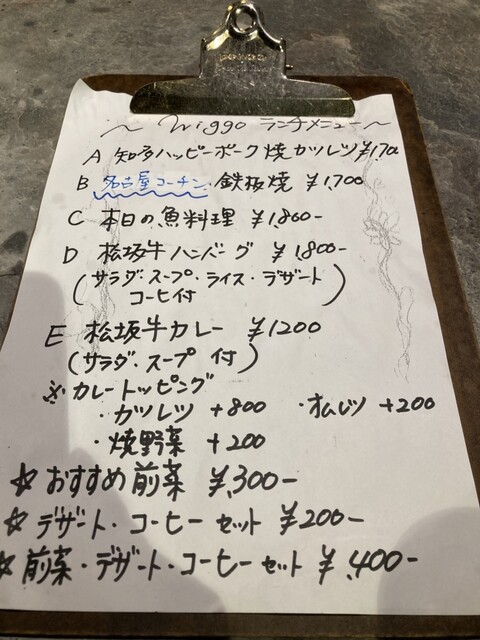 ～ Wiggo ランチメニュー ～
A 知多ハッピーポーク焼カツレツ ¥1,700
B 名古屋コーチン 鉄板焼 ¥1,700
C 本日の魚料理 ¥1,800-
D 松坂牛ハンバーグ ¥1,800-
(サラダ・スープ・ライス・デザート
コーヒ付)
E 松坂牛カレー ¥1200
(サラダ・スープ付)
※カレートッピング
・カツレツ +800 ・オムレツ +200
・焼野菜 +200
☆おすすめ前菜 ¥,300-
☆デザート・コーヒーセット ¥200-
☆前菜・デザート・コーヒーセット ¥,400-